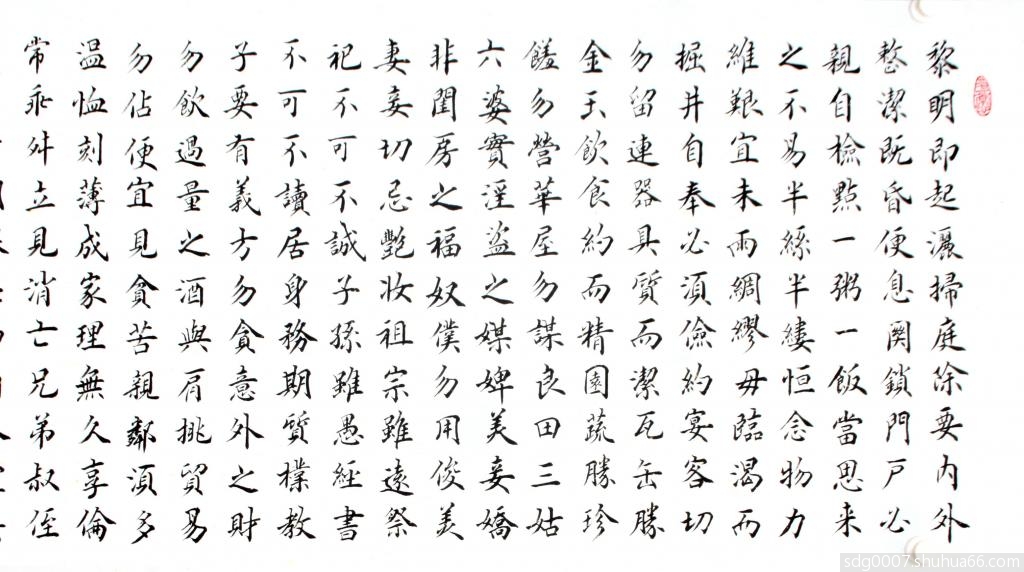 黎明即起灑掃庭除要内外
整潔既昏便息関鎖門戶必
親自檢點一粥一飯當思来
之不易半絲半縷恒念物力
維艱宜未雨綢繆毋臨渴而
掘井自奉必湏儉約宴客切
勿留連器具質而潔瓦缶勝
金玉飲食約而精園蔬勝珍
饈勿營華屋勿謀良田三姑
六婆實淫盗之媒婢美妾嬌
非閨房之福奴僕勿用俊美
妻妾切忌艷妝祖宗雖遠祭
祀不可不誠子孫雖愚經書
不可不讀居身務期質樸教
子要有義方勿貪意外之財
勿飲過量之酒與肩挑貿易
勿佔便宜見貧苦親鄰湏多
温恤刻薄成家理無久享倫
常乖舛立見消亡兄弟叔侄
sdg0007.shuhua66.com